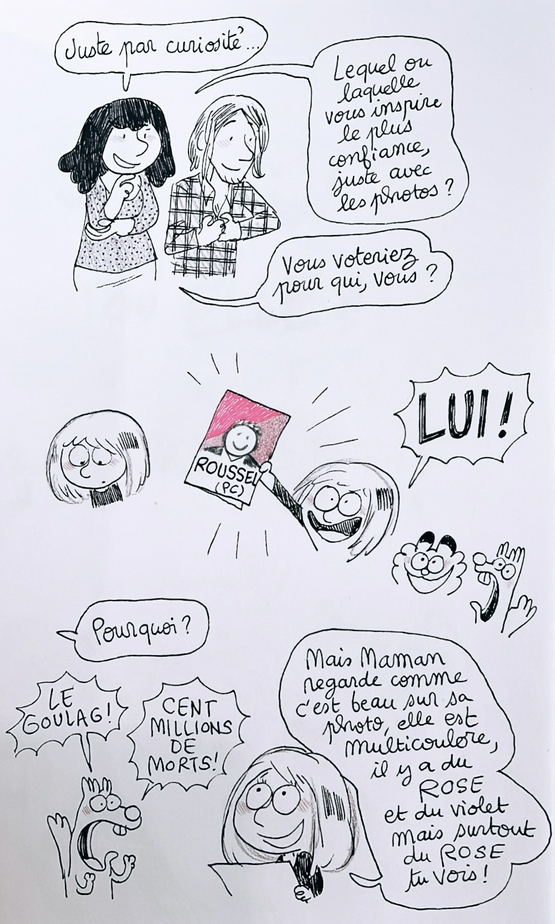 Juste par curiosité...
Lequel ou
laquelle
vous inspire
le plus
confiance,
juste avec
les photos ?
Vous voteriez
pour qui, vous ?
LUI !
ROUSSEL
(PC)
Pourquoi ?
LE
GOULAG !
CENT
MILLIONS
DE
MORTS !
Mais Maman
regarde comme
c'est beau sur sa
photo, elle est
multicoulore,
il y a du
ROSE
et du violet
mais surtout
du ROSE
tu vois !